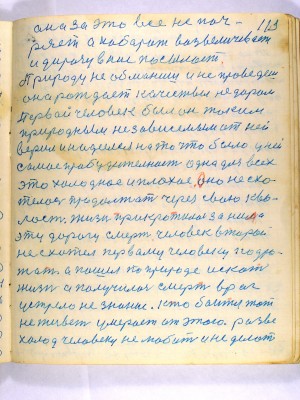 она за это все не пач-
рнет а наборат возвеличивает
и дорогу в них посылает.
Природу не обманиш и не проведеш
она рождает качествы недаром
Первай человек был он таким
природным независемым от ней
верил и надеялся на то что было
самое пробуджения одна для всех
это холодное и плохае. Оно не схо-
телось продолжат через свою ква-
лост. жизн прикротилас за ними
эту дорогу смерт человек второй
не схотел первому человеку подро-
жат а пошел по природе искат
жизн а получилас смерт враг
устрело не знание. кто боится тот
не живет умерает от этого. разве
холод человеку не любит и не делает